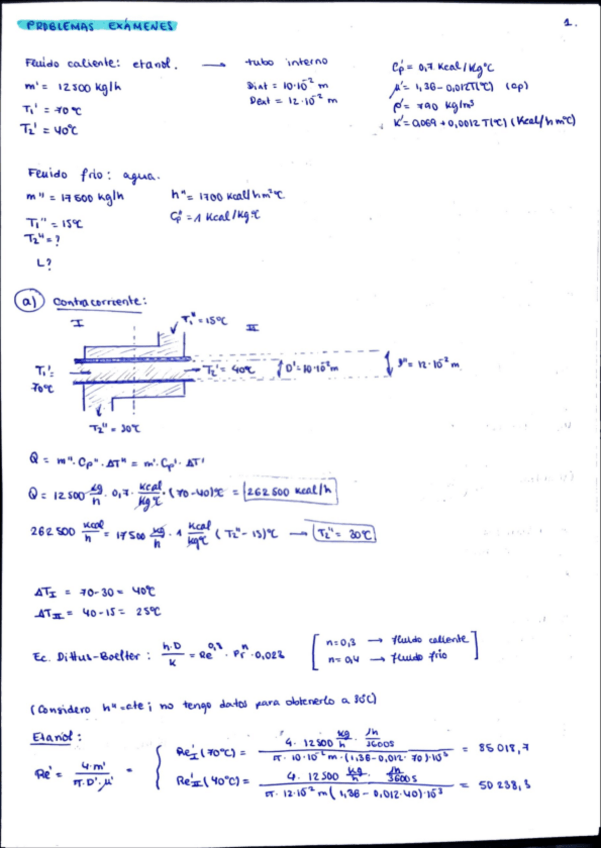 PROBLEMAS EXÁMENES
1.
Fluido caliente: etanol. → tubo interno
m' = 12500 kg/h
T₁' = 70ºC
T₂' = 40ºC
Dint = 10·10⁻² m
Dext = 12·10⁻² m
Cp' = 0,7 Kcal/Kg°C
μ' = 1,36-0,012T(°C) (cp)
ρ' = 790 kg/m³
K' = 0,069 + 0,0012 T(°C) (Kcal/h m°C)
Fluido frío: agua.
m'' = 17500 kg/h
T₁'' = 15ºC
T₂'' = ?
L?
h'' = 1700 Kcal/hm²ºC
Cp'' = 1 Kcal/Kg ºC
a) Contracorriente:
I
T₁'' = 15ºC
II
T₁' = 70ºC
T₂' = 40ºC
D' = 10·10⁻² m
D'' = 12·10⁻² m
T₂'' = 30ºC
Q = m''·Cp''·ΔT'' = m'·Cp'·ΔT'
Q = 12500 kg/h · 0,7 · Kcal/Kg ºC · (70-40)ºC = 262500 Kcal/h
262500 Kcal/h = 17500 kg/h · 1 Kcal/kgºC (T₂'' - 15)ºC → T₂'' = 30ºC
ΔT_I = 70-30 = 40ºC
ΔT_II = 40-15 = 25ºC
Ec. Dittus-Boelter: h·D/K = Re^0,8 · Pr^n · 0,023
[n=0,3 → fluido caliente
n=0,4 → fluido frío]
(Considero h''=cte; no tengo datos para obtenerlo a 30ºC)
Etanol:
Re' = 4·m'/π·D'·μ' =
{Re'_I (70ºC) = 4·12500 kg/h · 1h/3600s / π·10·10⁻² m·(1,36-0,012·70)·10⁻³ = 85018,7
Re'_II (40ºC) = 4·12500 kg/h · 1h/3600s / π·12·10⁻² m (1,36-0,012·40)·10⁻³ = 50238,3